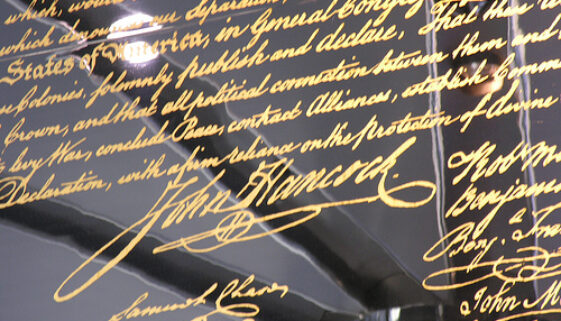 which, would
which denounces our Separation
States of America, in General Congress
Colonies, solemnly publish and declare, That these
Crown, and that all political connection between them and
levy War, conclude Peace, contract Alliances, establish Comm
Declaration, with a firm reliance on the protection of divine
John Hancock.
Rob Mo
Benjamin
Benj. Fran
Samuel Chase
John Mo